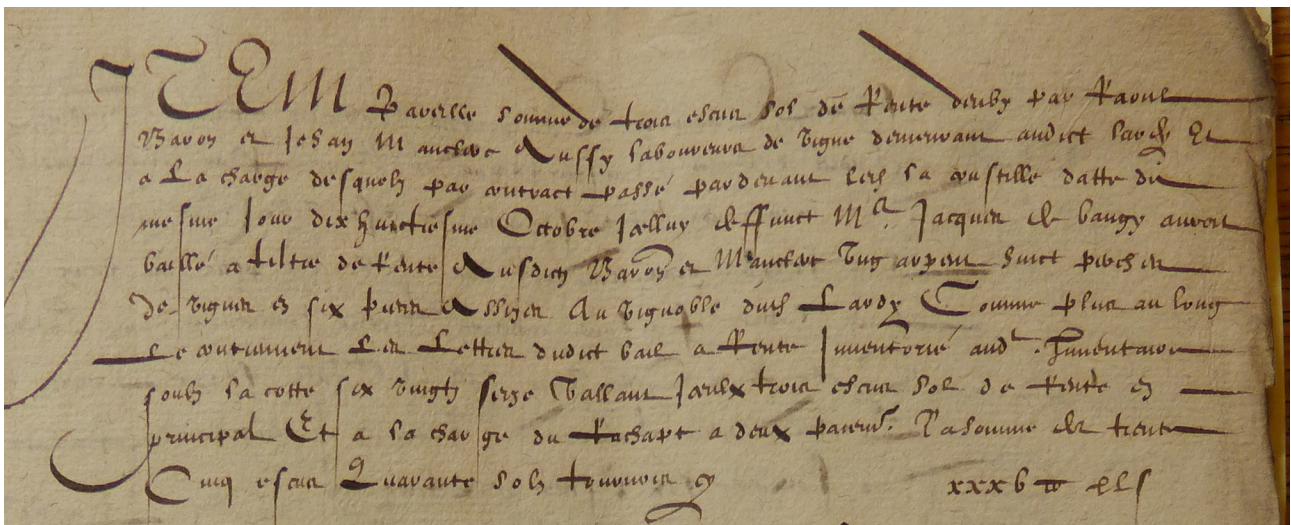 ITEM Pareille somme de trois escus sol de Rente deubz par Raoul
Baron et Jehan Mauclerc Aussy laboureurs de vigne demeurant audict Lardy Et
a La charge desquelz par contract passé pardevant led La coustille datté du
mesme Jour dixhuictiesme Octobre Icelluy deffunct Mr Jacques de baugy auroit
baillé a tiltre de Rente Ausdictz Baron et Mauclerc Ung arpent huict perches
De vignes en six pieces Assizes Au vignoble dud Lardy Comme plus au long
Le contiennent Les Lettres dudict bail a Rente Inventorié aud Inventaire
soubz la cotte six vingtz seize Vallant Iceulx trois escus sol de Rente en
principal Et a la charge du Rachapt a deux paiemens La somme de trente
Cinq escus Quarante solz tournois cy xxxv xls